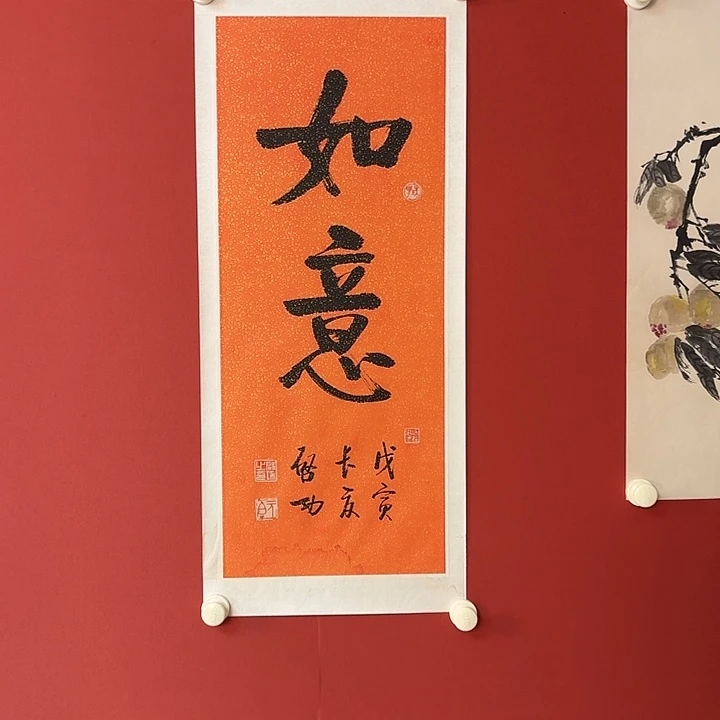 如意
戊寅
长夏
启功